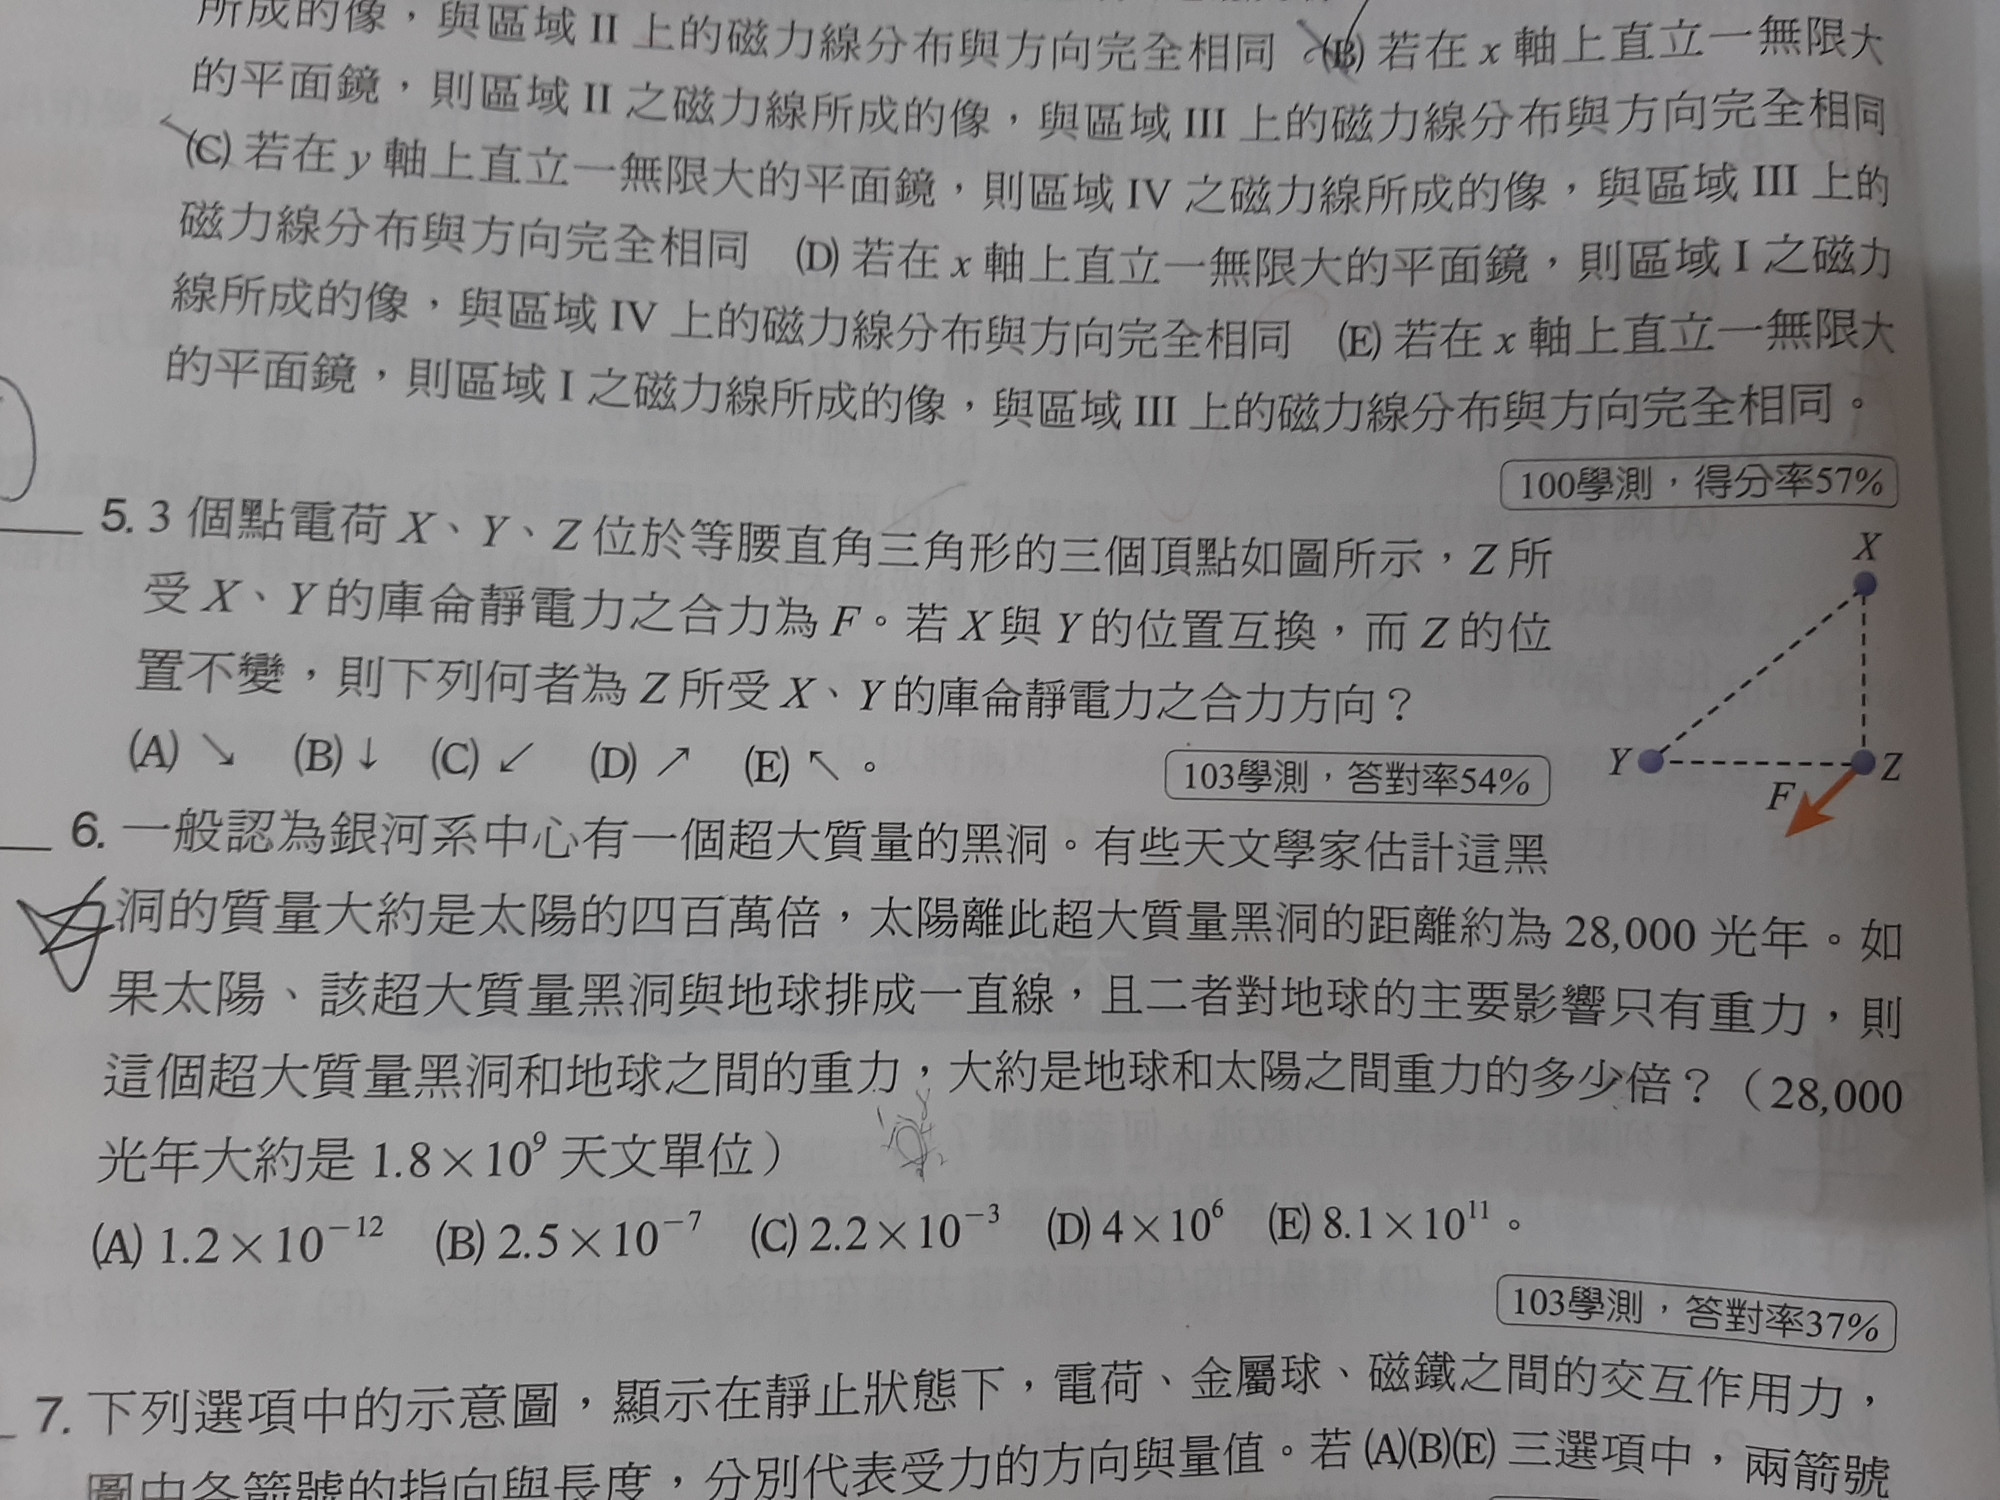 所成的像，與區域 II 上的磁力線分布與方向完全相同 (B) 若在 x 軸上直立一無限大
的平面鏡，則區域 II 之磁力線所成的像，與區域 III 上的磁力線分布與方向完全相同
(C) 若在 y 軸上直立一無限大的平面鏡，則區域 IV 之磁力線所成的像，與區域 III 上的
磁力線分布與方向完全相同 (D) 若在 x 軸上直立一無限大的平面鏡，則區域 I 之磁力
線所成的像，與區域 IV 上的磁力線分布與方向完全相同 (E) 若在 x 軸上直立一無限大
的平面鏡，則區域 I 之磁力線所成的像，與區域 III 上的磁力線分布與方向完全相同。
100學測，得分率57%
5. 3 個點電荷 X、Y、Z 位於等腰直角三角形的三個頂點如圖所示，Z 所
受 X、Y 的庫侖靜電力之合力為 F。若 X 與 Y 的位置互換，而 Z 的位
置不變，則下列何者為 Z 所受 X、Y 的庫侖靜電力之合力方向？
(A) ↘ (B) ↓ (C) ↙ (D) ↗ (E) ↖ 。
103學測，答對率54%
X
Y
Z
F
6. 一般認為銀河系中心有一個超大質量的黑洞。有些天文學家估計這黑
洞的質量大約是太陽的四百萬倍，太陽離此超大質量黑洞的距離約為 28,000 光年。如
果太陽、該超大質量黑洞與地球排成一直線，且二者對地球的主要影響只有重力，則
這個超大質量黑洞和地球之間的重力，大約是地球和太陽之間重力的多少倍？（28,000
光年大約是 1.8×10⁹ 天文單位）
(A) 1.2×10⁻¹² (B) 2.5×10⁻⁷ (C) 2.2×10⁻³ (D) 4×10⁶ (E) 8.1×10¹¹ 。
103學測，答對率37%
7. 下列選項中的示意圖，顯示在靜止狀態下，電荷、金屬球、磁鐵之間的交互作用力，
圖中各箭號的指向與長度，分別代表受力的方向與量值。若 (A)(B)(E) 三選項中，兩箭號